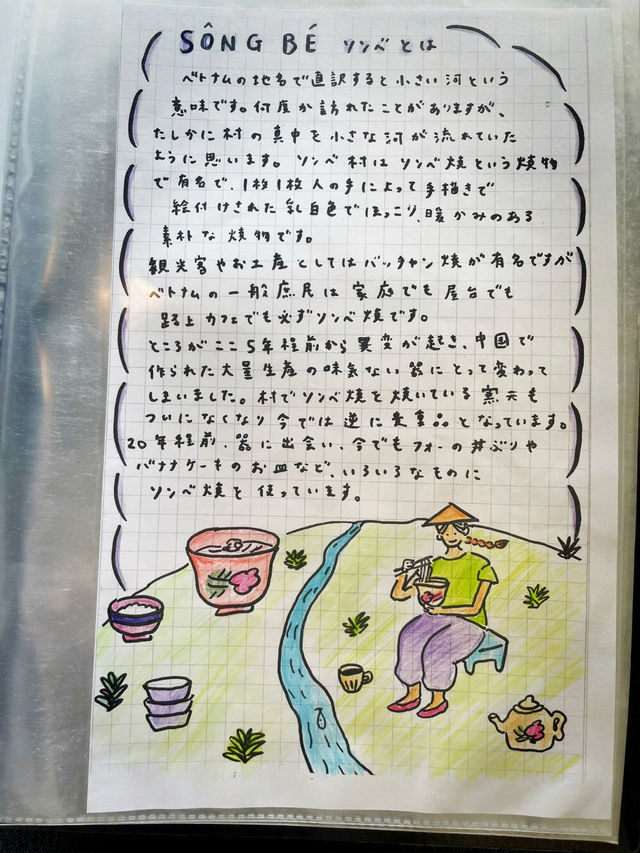 SÔNG BÉ ソンベとは
ベトナムの地名で直訳すると小さい河という
意味です。何度か訪れたことがありますが、
たしかに村の真中を小さな河が流れていた
ように思います。ソンベ村はソンベ焼という焼物
で有名で、1枚1枚人の手によって手描きで
絵付けされた乳白色でほっこり、暖かみのある
素朴な焼物です。
観光客やお土産としてはバッチャン焼が有名ですが
ベトナムの一般庶民は家庭でも屋台でも
路上カフェでも必ずソンベ焼です。
ところがここ5年程前から異変が起き、中国で
作られた大量生産の味気ない器にとって変わって
しまいました。村でソンベ焼を焼いている窯元も
ついになくなり今では逆に貴重品となっています。
20年程前、器に出会い、今でもフォーの丼ぶりや
バナナケーキのお皿など、いろいろなものに
ソンベ焼を使っています。